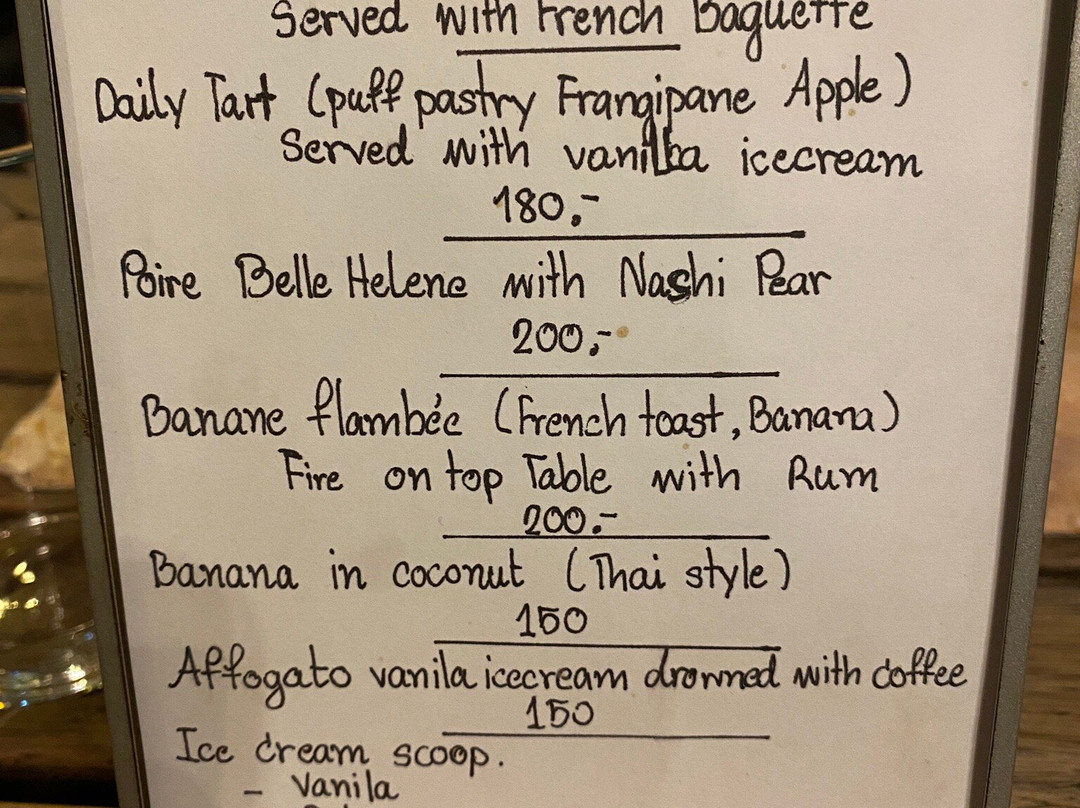 Served with French Baguette
Daily Tart (puff pastry Frangipane Apple)
Served with vanilla icecream
180.-
Poire Belle Helene with Nashi Pear
200,-
Banane flambée (French toast, Banana)
Fire on top Table with Rum
200.-
Banana in coconut (Thai style)
150
Affogato vanila icecream drowned with coffee
150
Ice cream scoop.
- Vanila